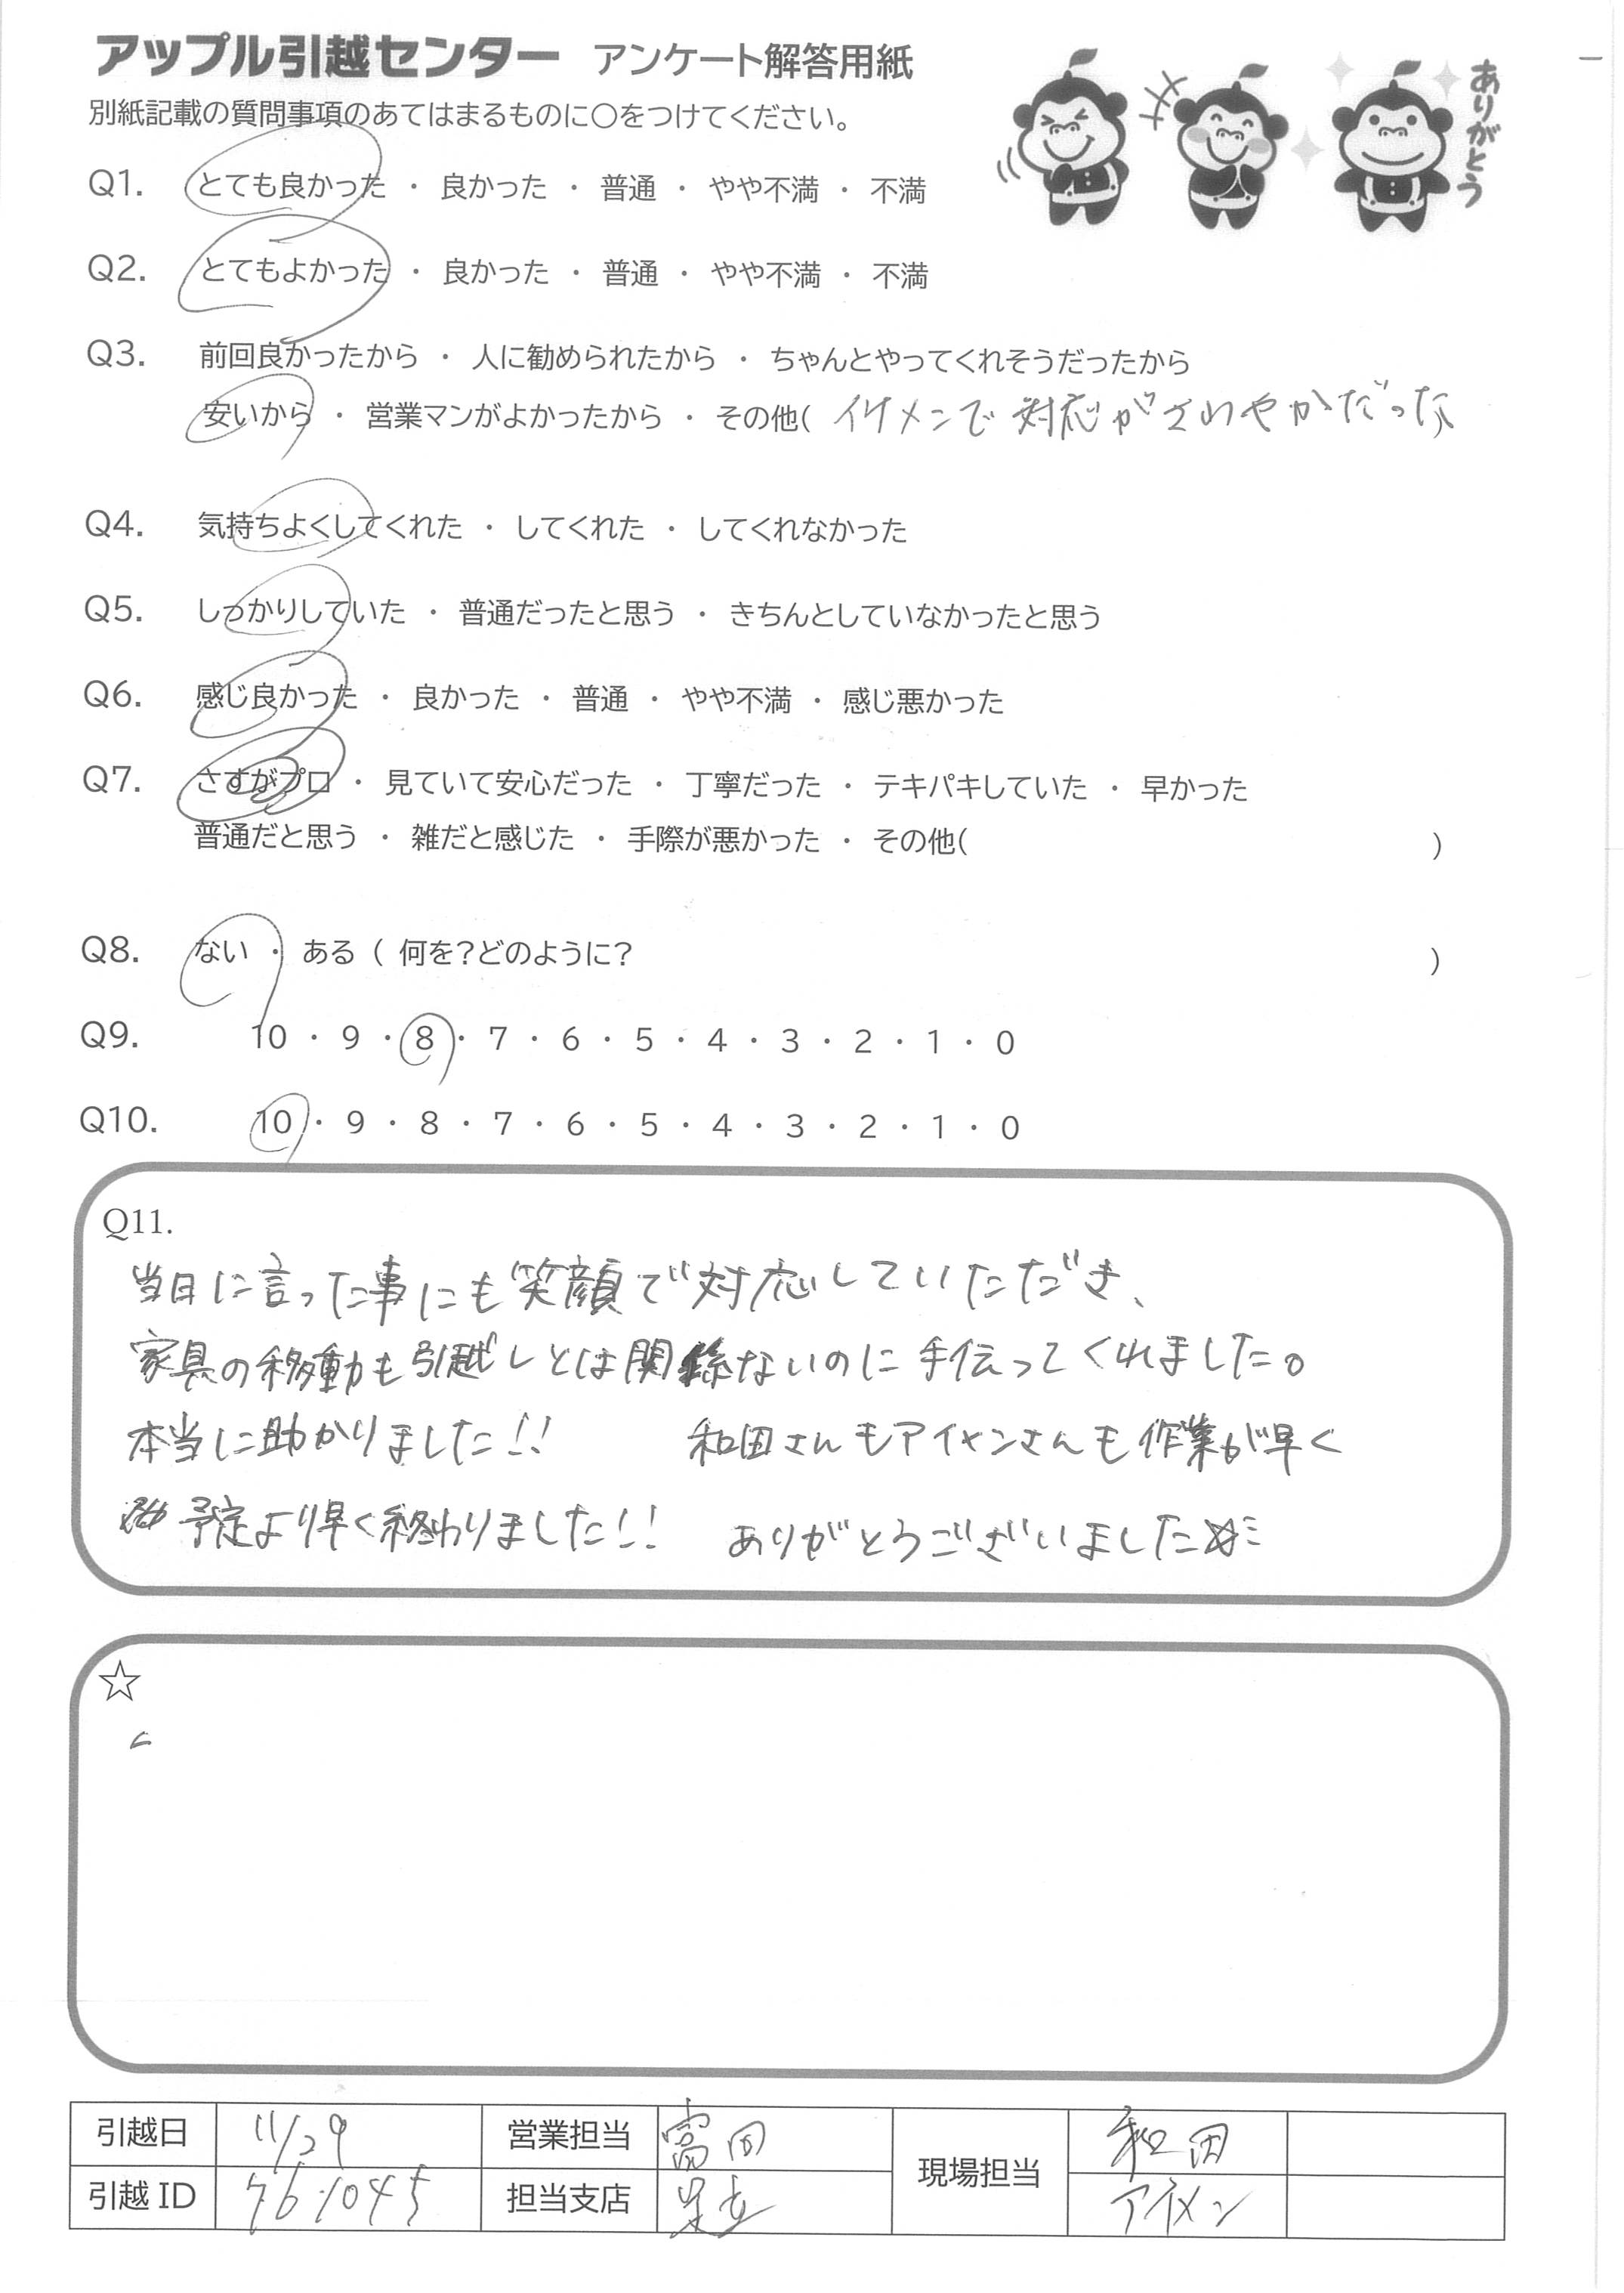 アップル引越センター アンケート解答用紙
ありがとう
別紙記載の質問事項のあてはまるものに○をつけてください。
Q1. とても良かった ・ 良かった ・ 普通 ・ やや不満 ・ 不満
Q2. とてもよかった ・ 良かった ・ 普通 ・ やや不満 ・ 不満
Q3. 前回良かったから ・ 人に勧められたから ・ ちゃんとやってくれそうだったから
安いから ・ 営業マンがよかったから ・ その他( イケメンで対応がさわやかだった )
Q4. 気持ちよくしてくれた ・ してくれた ・ してくれなかった
Q5. しっかりしていた ・ 普通だったと思う ・ きちんとしていなかったと思う
Q6. 感じ良かった ・ 良かった ・ 普通 ・ やや不満 ・ 感じ悪かった
Q7. さすがプロ ・ 見ていて安心だった ・ 丁寧だった ・ テキパキしていた ・ 早かった
普通だと思う ・ 雑だと感じた ・ 手際が悪かった ・ その他( )
Q8. ない ・ ある ( 何を?どのように? )
Q9. 10 ・ 9 ・ 8 ・ 7 ・ 6 ・ 5 ・ 4 ・ 3 ・ 2 ・ 1 ・ 0
Q10. 10 ・ 9 ・ 8 ・ 7 ・ 6 ・ 5 ・ 4 ・ 3 ・ 2 ・ 1 ・ 0
Q11.
当日に言った事にも笑顔で対応していただき、
家具の移動も引越しとは関係ないのに手伝ってくれました。
本当に助かりました!! 和田さんもアイメンさんも作業が早く
予定より早く終わりました!! ありがとうございました
☆
引越日 11/29 営業担当 富田 現場担当 和田
引越ID 761045 担当支店 足立 アイメン